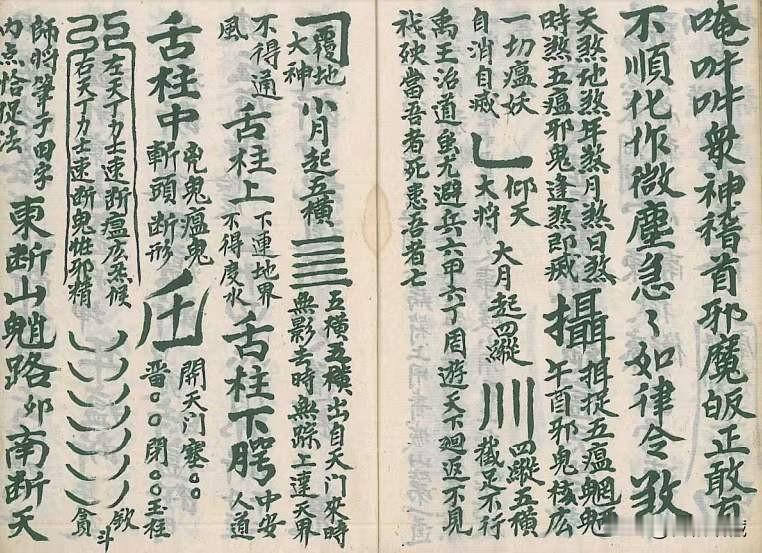 唵吽吽衆神稽首邪魔皈正敢有
不順化作微塵急〻如律令煞
天煞地煞年煞月煞日煞
時煞五瘟邪鬼逢煞即滅
攝
押捉五瘟魍魎
午酉邪鬼核広
一切瘟妖
自消自滅
乚
仰天
大将
大月起四縱
川
四縱五橫
截足不行
禹王治道蚩尤避兵六甲六丁周遊天下廻返不見
我殃當吾者死患吾者七
覆地
大神
小月起五橫
五橫五橫出自天门來時
無影去時無踪上達天界
不得通
風
舌柱上
下連地界
不得度水
舌柱下腭
中安
人道
舌柱中
兇鬼瘟鬼
斬頭断形
開天门塞〇〇
留〇〇閉〇〇玉柱
左天丁力士速断瘟広炁候
右天丁力士速断鬼怪邪精
欽
斗
貪
師将筆子田字
内点恰促法
東断山魈路卯南断天